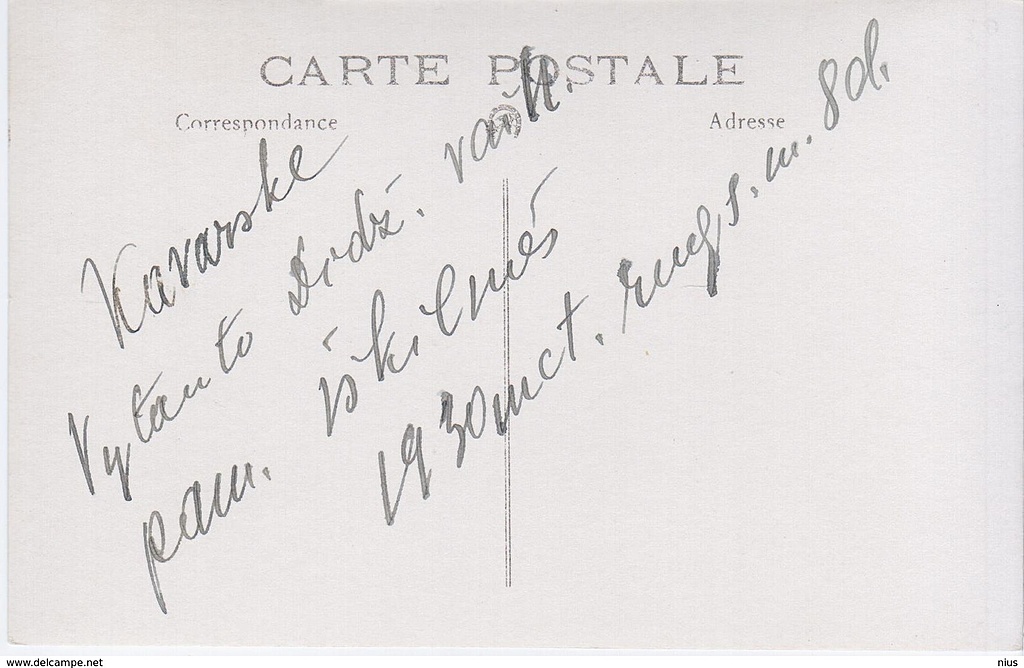 CARTE POSTALE
Correspondance
Adresse
Kavarske
Vytauto Didž.
pam. iškilmės
1930 met. rugs. m. 8 d.
www.delcampe.net
nius